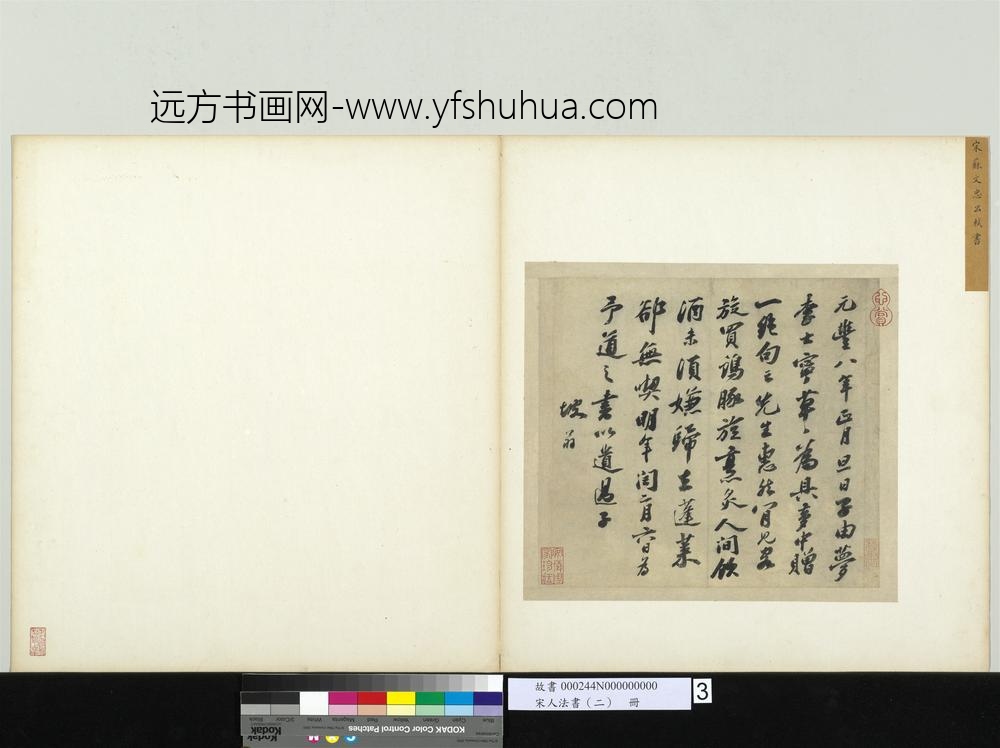 远方书画网-www.yfshuhua.com
宋蘇文忠公杖書
元豐八年正月旦日子由夢
李士寧草〻為具夢中贈
一絕句云先生惠然肯見客
旋買雞豚旋烹炙人間飲
酒未須嫌歸去蓬萊
郤無喫明年閏二月六日為
予道之書以遺過子
坡翁
故書 000244N000000000
宋人法書（二） 冊
3
KODAK Color Control Patches
Kodak
Blue
Cyan
Green
Yellow
Red
Magenta
White
3/Color
Black